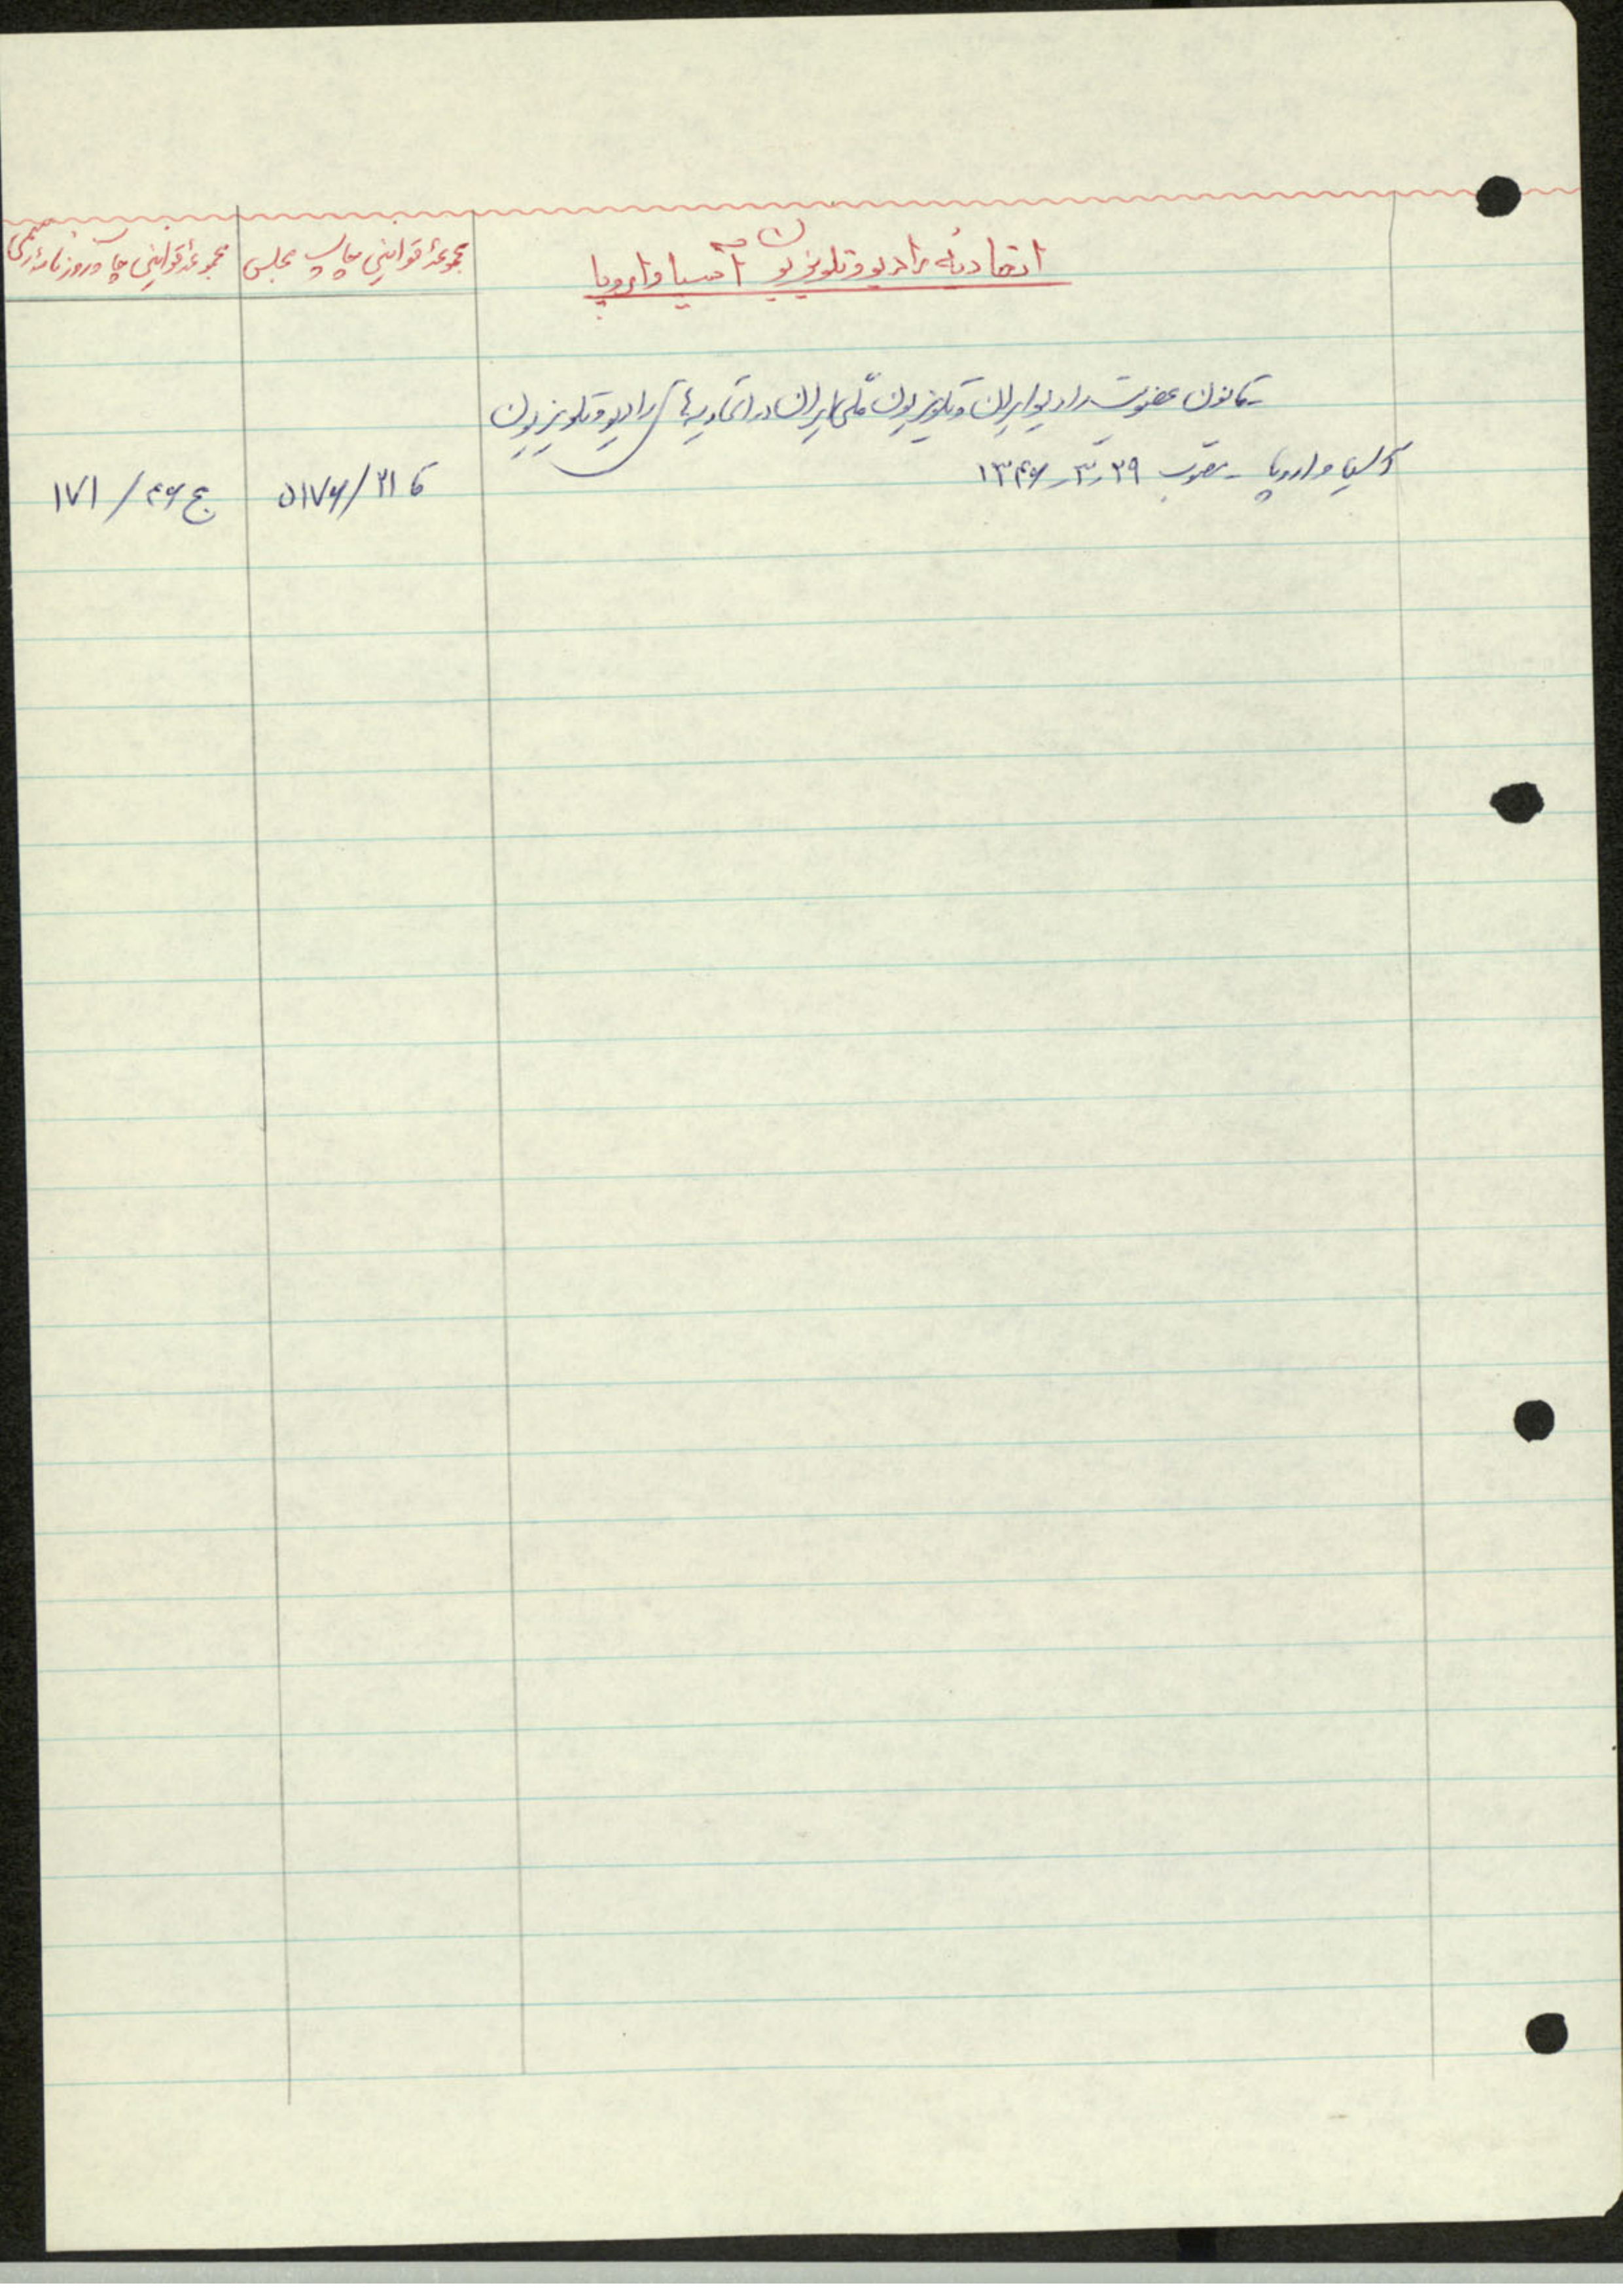 اتحادیه رادیو و تلویزیون آسیا و اروپا
مجموعهٔ قوانین چاپ مجلس
مجموعهٔ قوانین چاپ روزنامه رسمی
قانون عضویت رادیو ایران و تلویزیون ملّی ایران در اتحادیه های رادیو و تلویزیون
آسیا و اروپا - مصوب ۲۹-۳-۱۳۴۶
۵۱۷۶/۲۱ کا
ج ۴۶ / ۱۷۱